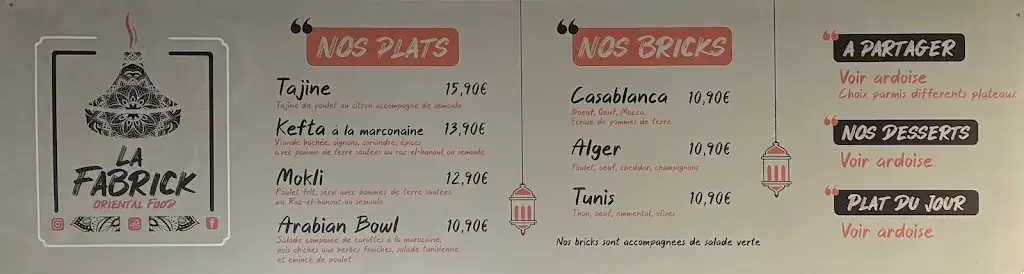 LA
FABRICK
ORIENTAL FOOD
NOS PLATS
Tajine 15,90€
Tajine de poulet au citron accompagne de semoule
Kefta à la marconaine 13,90€
Viande hachée, oignons, coriandre, épices
avec pomme de terre soutées au raz-el-hanout ou semoule
Mokli 12,90€
Poulet frit, servi avec pommes de terre soutées
au Raz-el-hanout ou semoule
Arabian Bowl 10,90€
Salade composée de carottes à la marocaine,
pois chiches aux herbes fraiches, salade tunisienne
et émincé de poulet
NOS BRICKS
Casablanca 10,90€
Boeuf, Oeuf, Mozza,
Ecrasé de pommes de terre
Alger 10,90€
Poulet, oeuf, cheddar, champignons
Tunis 10,90€
Thon, oeuf, emmental, olives
Nos bricks sont accompagnees de salade verte
A PARTAGER
Voir ardoise
Choix parmis differents plateaux
NOS DESSERTS
Voir ardoise
PLAT DU JOUR
Voir ardoise